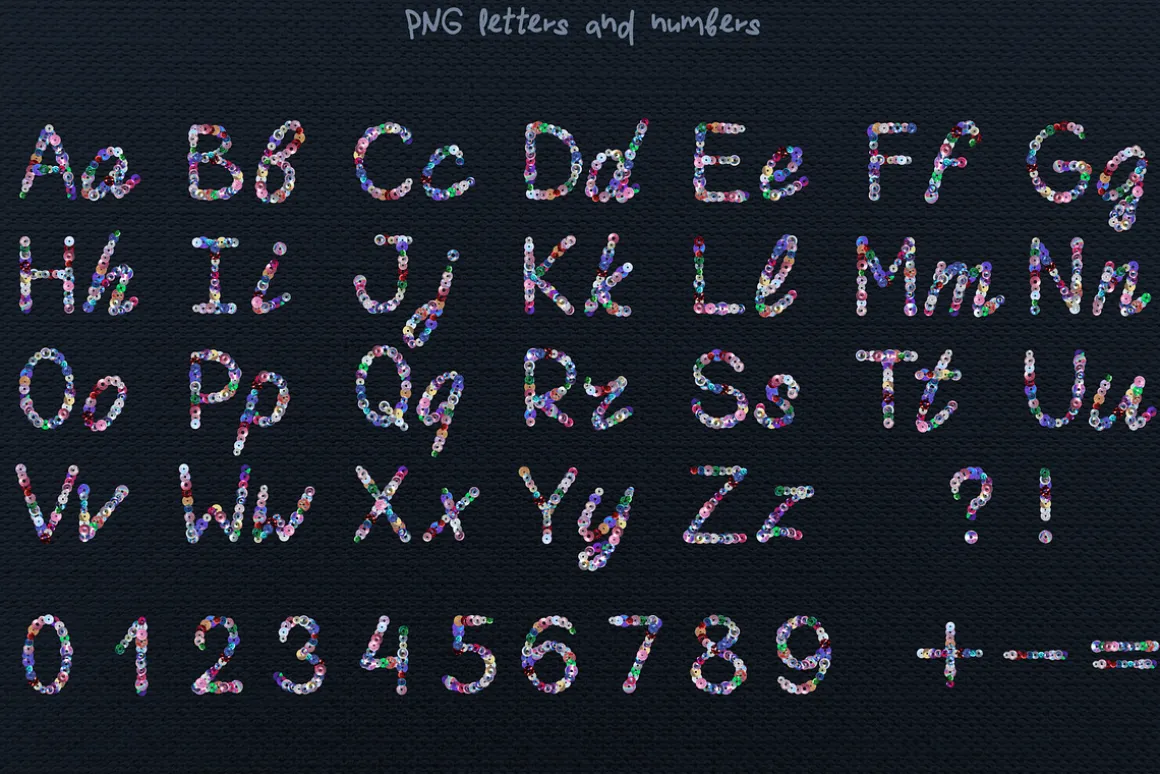 PNG letters and numbers
Aa Bb Cc Dd Ee Ff Gg
Hh Ii Jj Kk Ll Mm Nn
Oo Pp Qq Rr Ss Tt Uu
Vv Ww Xx Yy Zz ? !
0 1 2 3 4 5 6 7 8 9 + - =